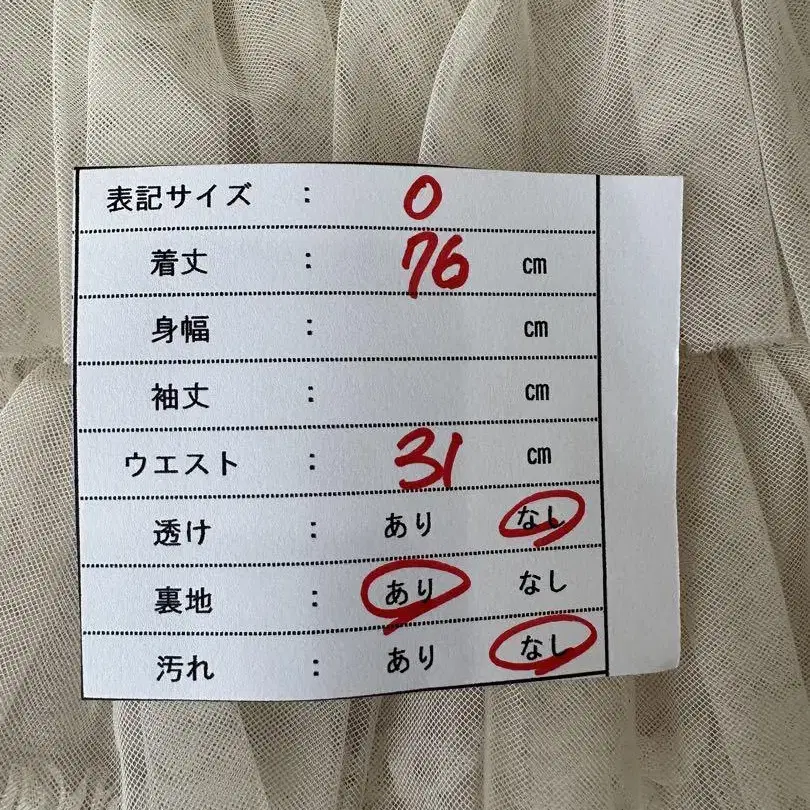 表記サイズ : 0
着丈 : 76 cm
身幅 : cm
袖丈 : cm
ウエスト : 31 cm
透け : あり なし
裏地 : あり なし
汚れ : あり なし